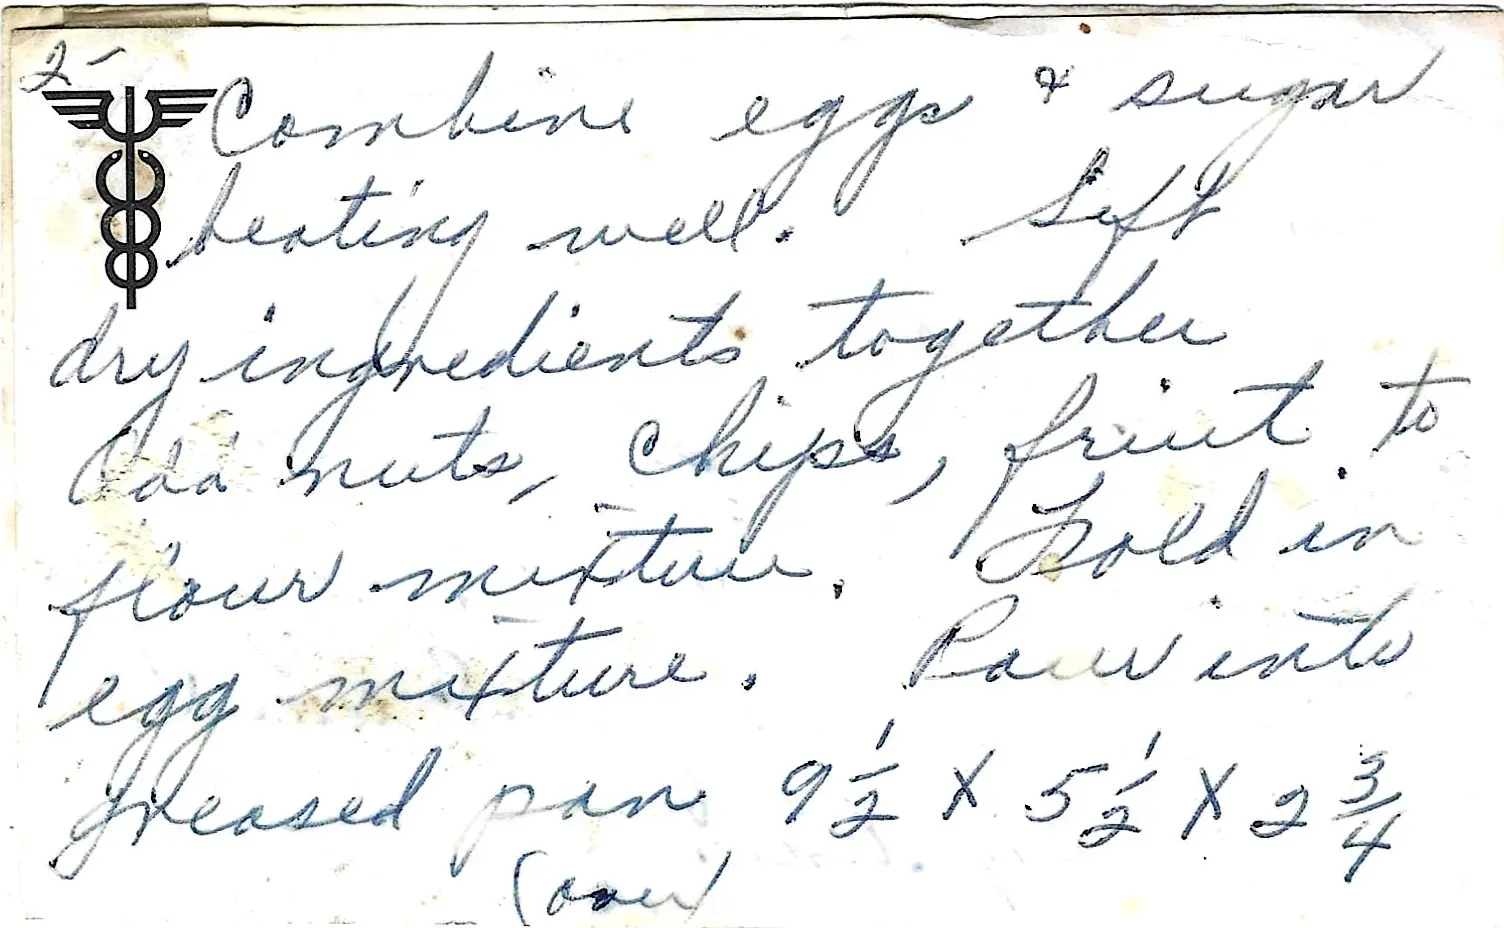 2-
Combine eggs & sugar
beating well. Sift
dry ingredients together
Add nuts, chips, fruit to
flour mixture. Fold in
egg mixture. Pour into
greased pan 9 1/2 X 5 1/2 X 2 3/4
(over)